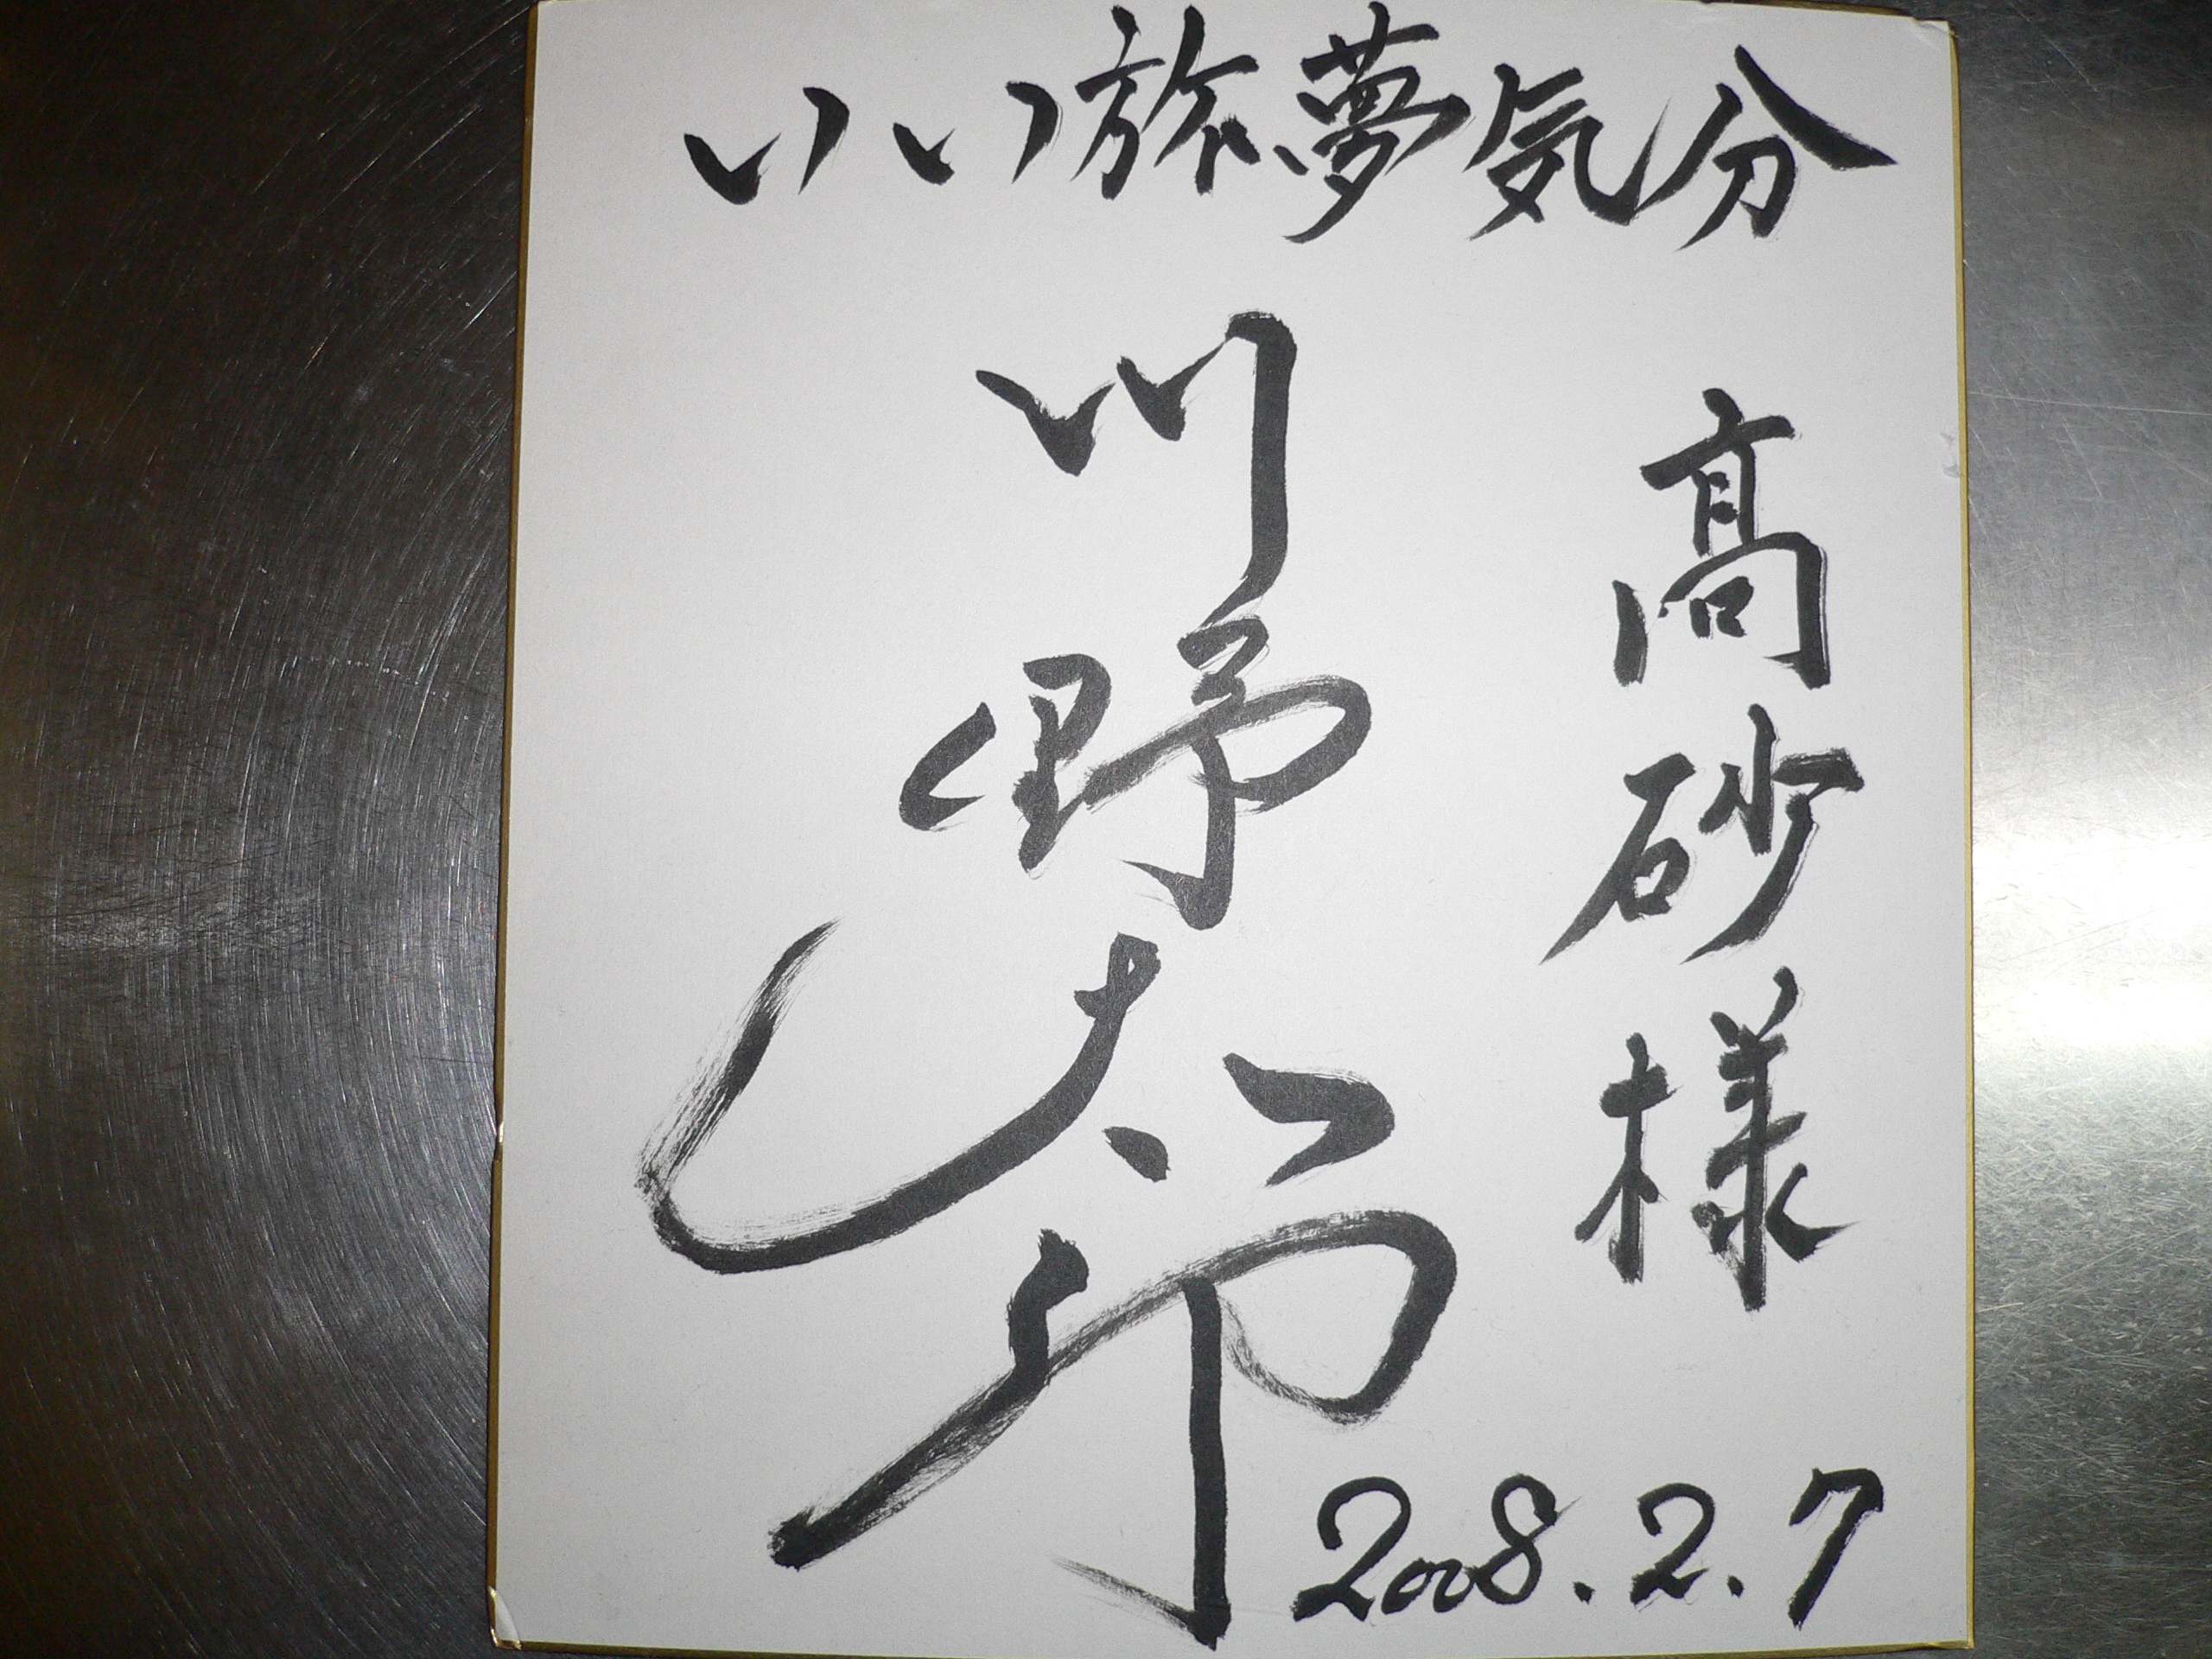 いい旅夢気分
髙砂様
川野太郎
2008.2.7